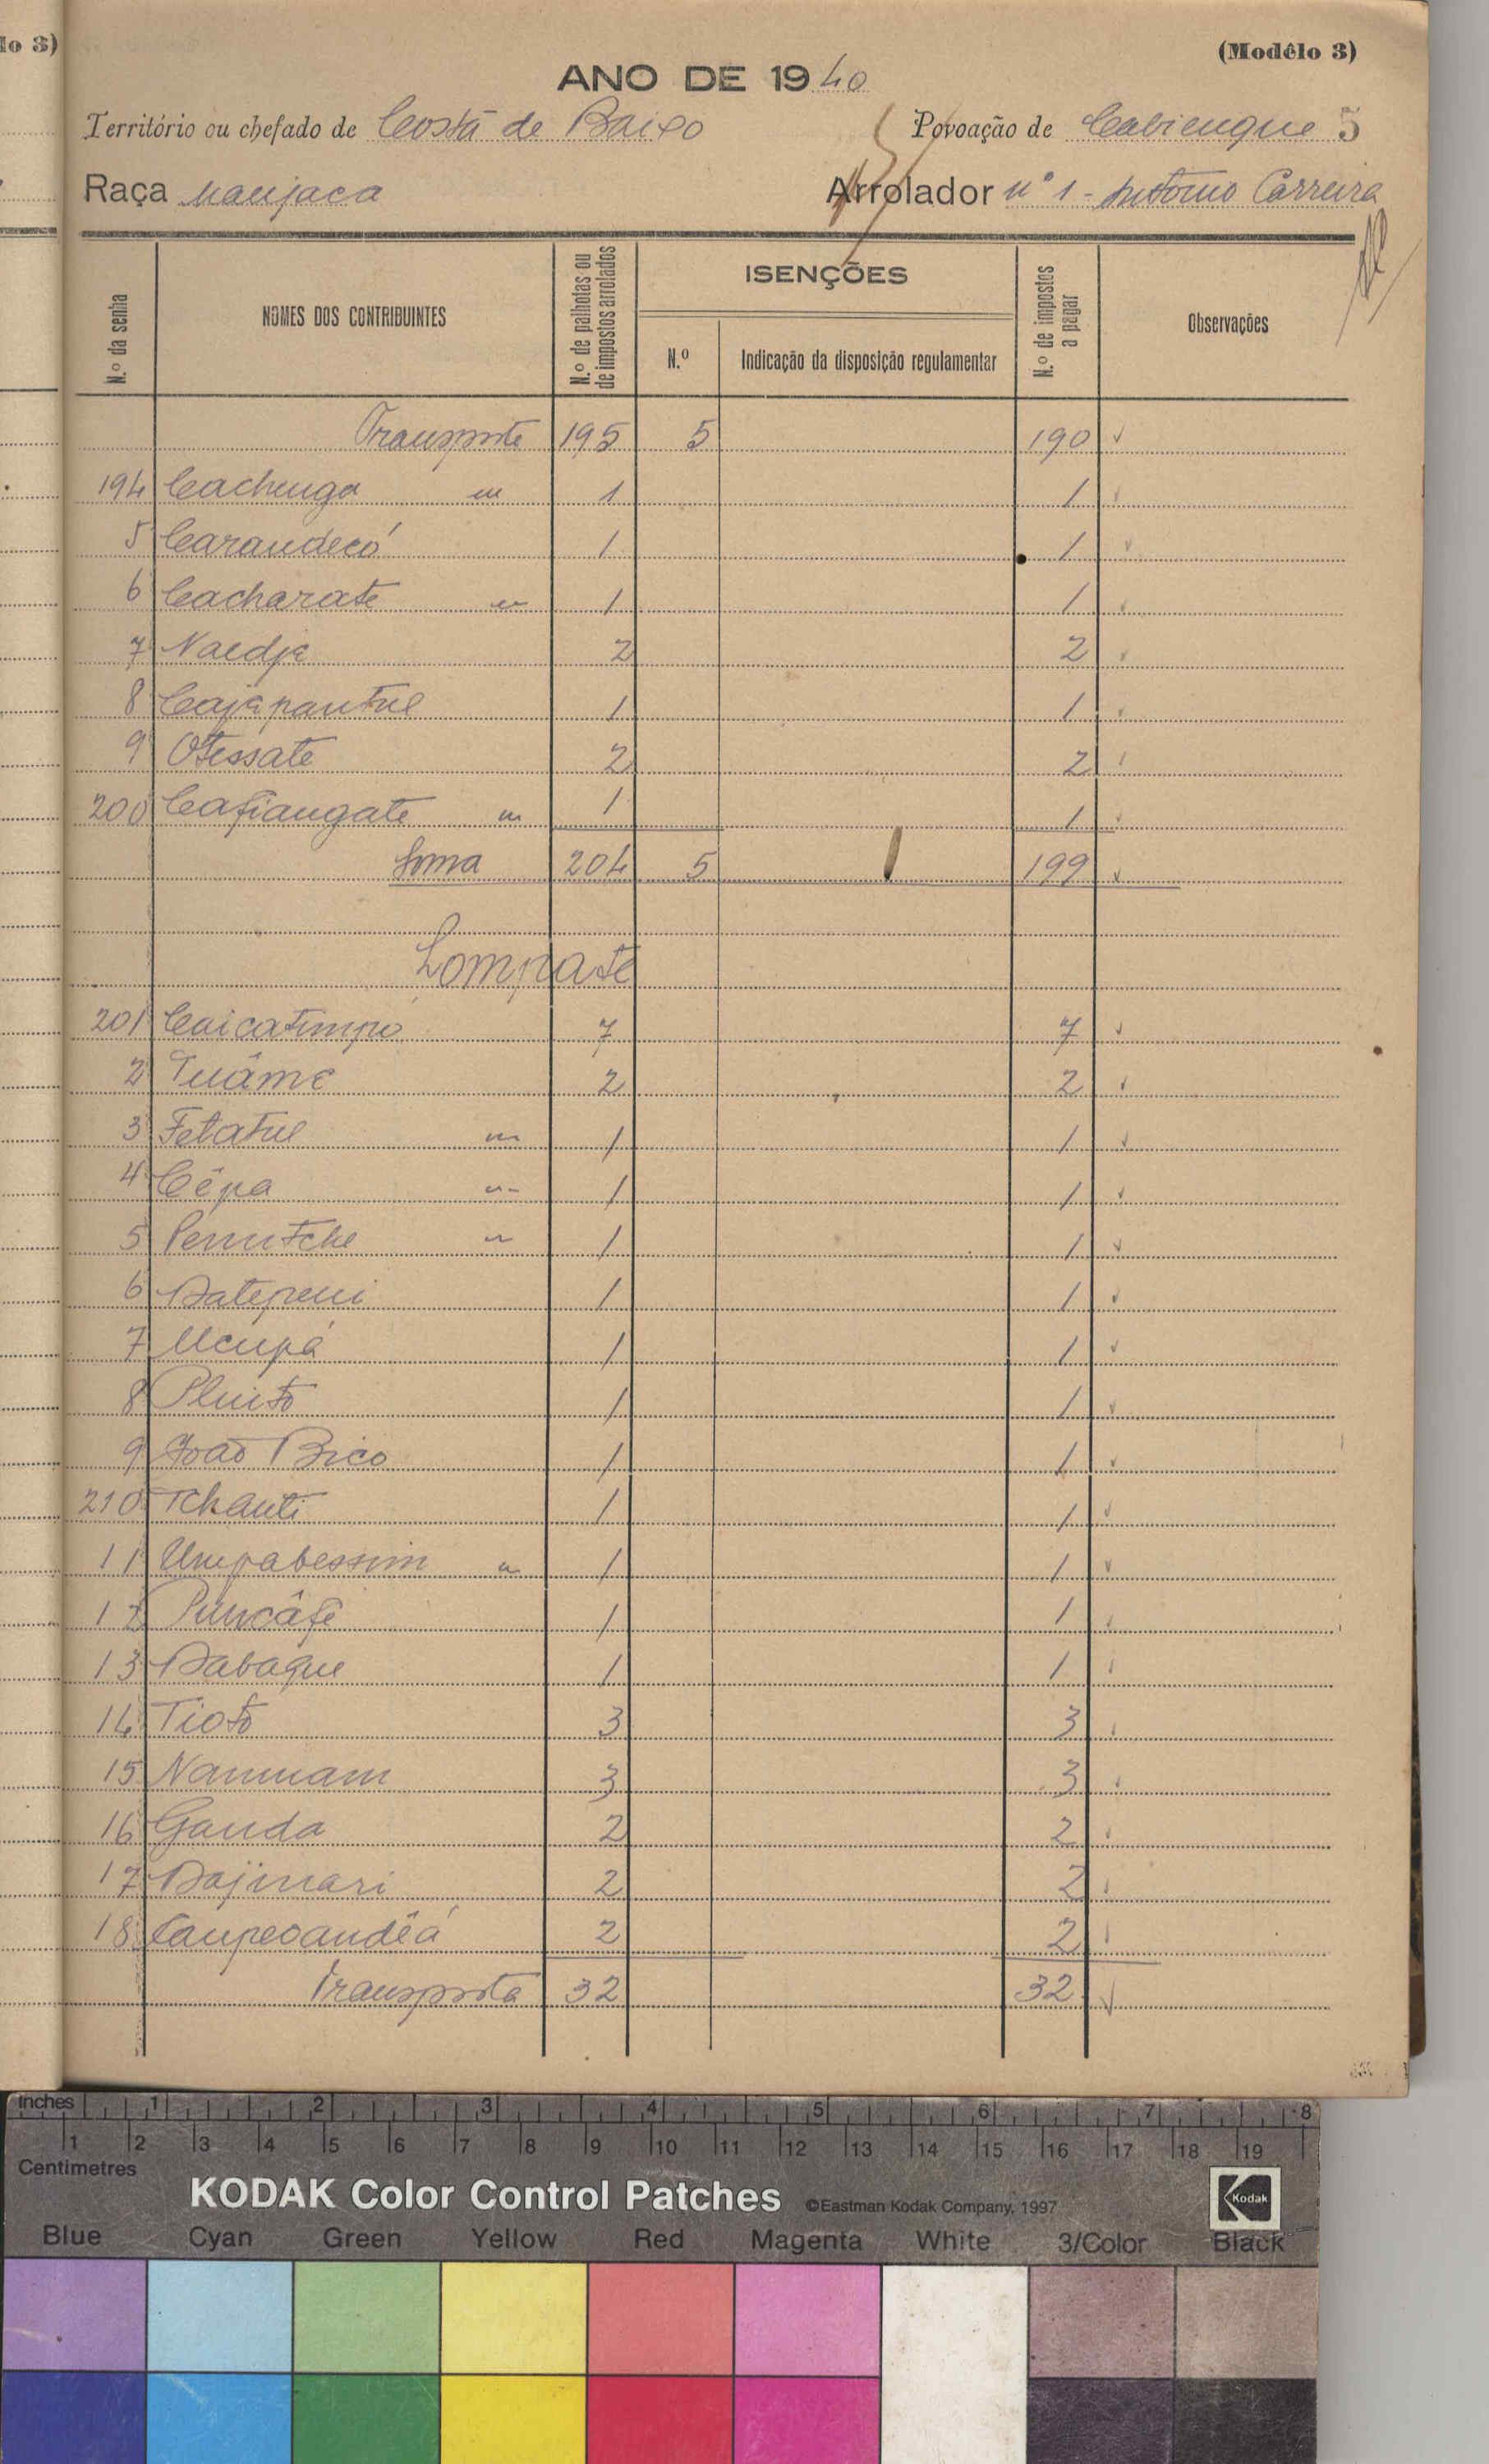 lo 3)
(Modêlo 3)
ANO DE 1940
Território ou chefado de Costa de Baixo Povoação de Cabienque 5
Raça manjaca Arrolador nº 1 - António Carreira
N.º da senha NOMES DOS CONTRIBUINTES N.º de palhotas ou de impostos arrolados ISENÇÕES N.º Indicação da disposição regulamentar N.º de impostos a pagar Observações
Transporte 195 5 190 ✓
194 Cachenga m 1 1 ✓
5 Carandecó 1 1 ✓
6 Cacharate m 1 1 ✓
7 Naedja 2 2 ✓
8 Cajapantue 1 1 ✓
9 Otessate 2 2 ✓
200 Cafiangate m 1 1 ✓
Soma 204 5 199 ✓
Lompate
201 Caicatimpo 7 7 ✓
2 Tuâme 2 2 ✓
3 Fetatue m 1 1 ✓
4 Cêpa m 1 1 ✓
5 Penutche m 1 1 ✓
6 Datepeni 1 1 ✓
7 Ucupá 1 1 ✓
8 Pluito 1 1 ✓
9 João Bico 1 1 ✓
210 Tchanti 1 1 ✓
11 Umpabessim m 1 1 ✓
12 Puncâfe 1 1 ✓
13 Dabaque 1 1 ✓
14 Tioto 3 3 ✓
15 Nanuam 3 3 ✓
16 Ganda 2 2 ✓
17 Dajimari 2 2 ✓
18 Caupeoandêá 2 2 ✓
Transporta 32 32 ✓
Inches 1 2 3 4 5 6 7 8
1 2 3 4 5 6 7 8 9 10 11 12 13 14 15 16 17 18 19
Centimetres
KODAK Color Control Patches ©Eastman Kodak Company, 1997 Kodak
Blue Cyan Green Yellow Red Magenta White 3/Color Black